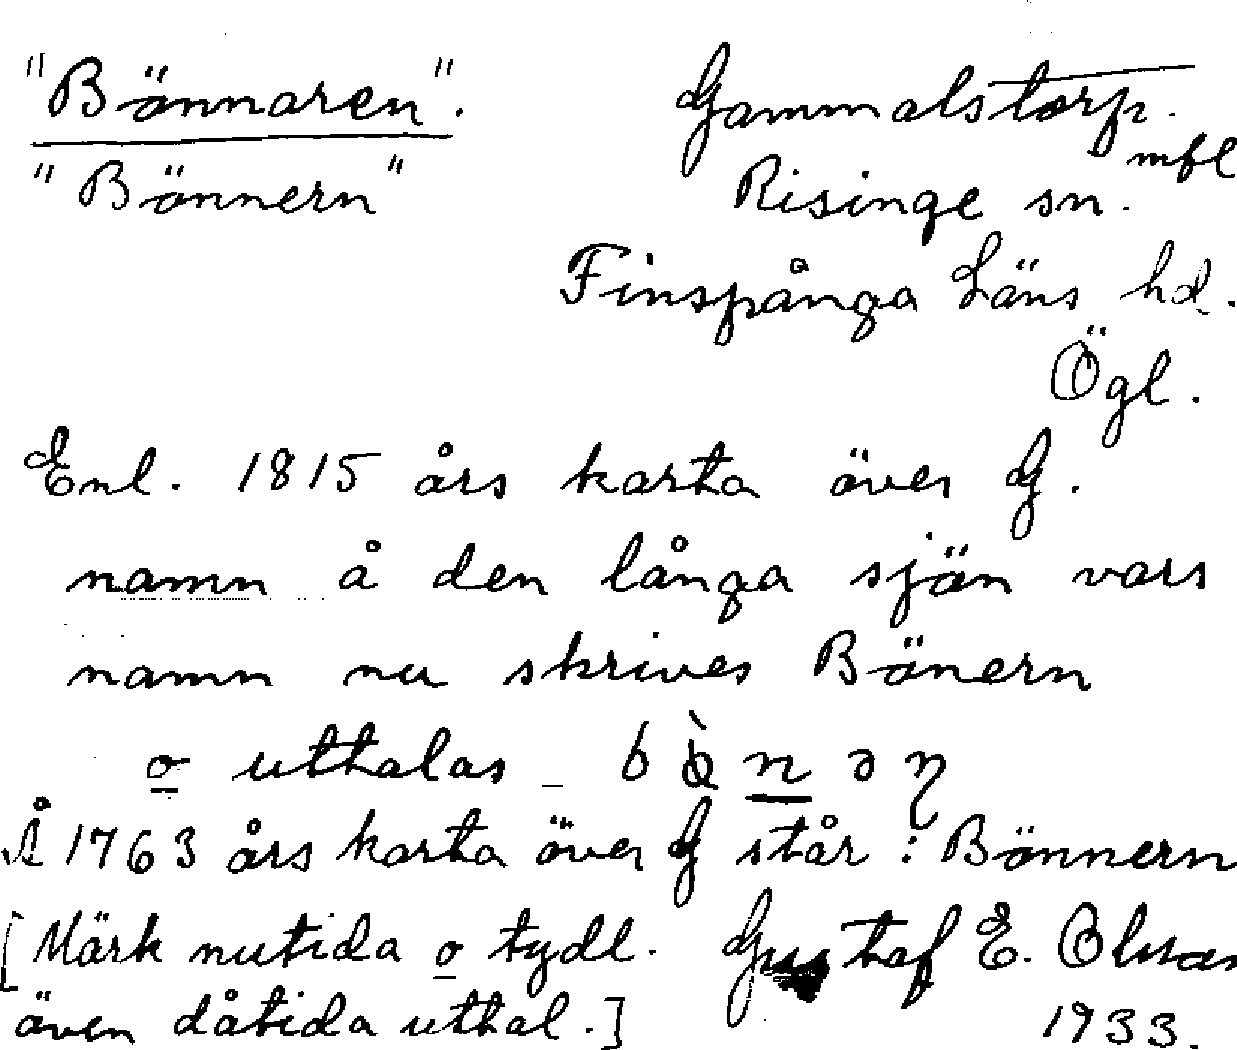 "Bönnaren". Gammalstorp.
"Bönnern" mfl
Risinge sn.
Finspånga Läns hd.
Ögl.
Enl. 1815 års karta över G.
namn å den långa sjön vars
namn nu skrives Bönern
o uttalas
Å 1763 års karta över G står: Bönnern
[Märk nutida o tydl. Gustaf E. Olsson
även dåtida uttal.] 1933.